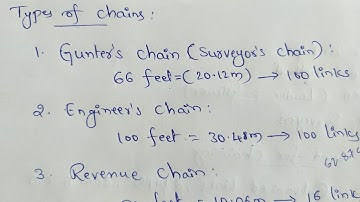 Types of chains:
1. Gunter's chain (Surveyor's chain):
66 feet = (20.12m) → 100 links
2. Engineer's chain:
100 feet = 30.48m → 100 links
3. Revenue chain:
feet = 10.06m → 16 link